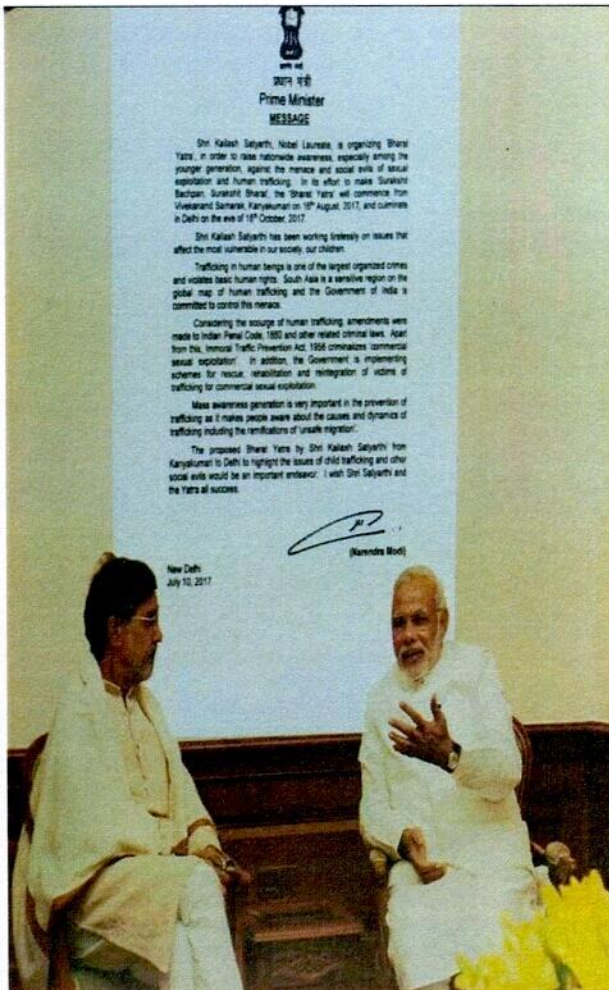 प्रधान मंत्री
Prime Minister
MESSAGE
Shri Kailash Satyarthi, Nobel Laureate, is organizing 'Bharat
Yatra', in order to raise nationwide awareness, especially among the
younger generation, against the menace and social evils of sexual
exploitation and human trafficking. In its effort to make Surakshit
Bachpan, Surakshit Bharat, the 'Bharat Yatra' will commence from
Vivekanand Samarak, Kanyakumari on August, 2017, and culminate
in Delhi on the eve of October, 2017.
Shri Kailash Satyarthi has been working tirelessly on issues that
affect the most vulnerable in our society, our children.
Trafficking in human beings is one of the largest organized crimes
and violates basic human rights. South Asia is a sensitive region on the
global map of human trafficking and the Government of India is
committed to control this menace.
Considering the scourge of human trafficking, amendments were
made to Indian Penal Code, 1860 and other related criminal laws. Apart
from this, Immoral Traffic Prevention Act, 1956 criminalizes 'commercial
sexual exploitation'. In addition, the Government is implementing
schemes for rescue, rehabilitation and reintegration of victims of
trafficking for commercial sexual exploitation.
Mass awareness generation is very important in the prevention of
trafficking as it makes people aware about the causes and dynamics of
trafficking including the ramifications of 'unsafe migration'.
The proposed Bharat Yatra by Shri Kailash Satyarthi from
Kanyakumari to Delhi to highlight the issues of child trafficking and other
social evils would be an important endeavor. I wish Shri Satyarthi and
the Yatra all success.
(Narendra Modi)
New Delhi
July 10, 2017